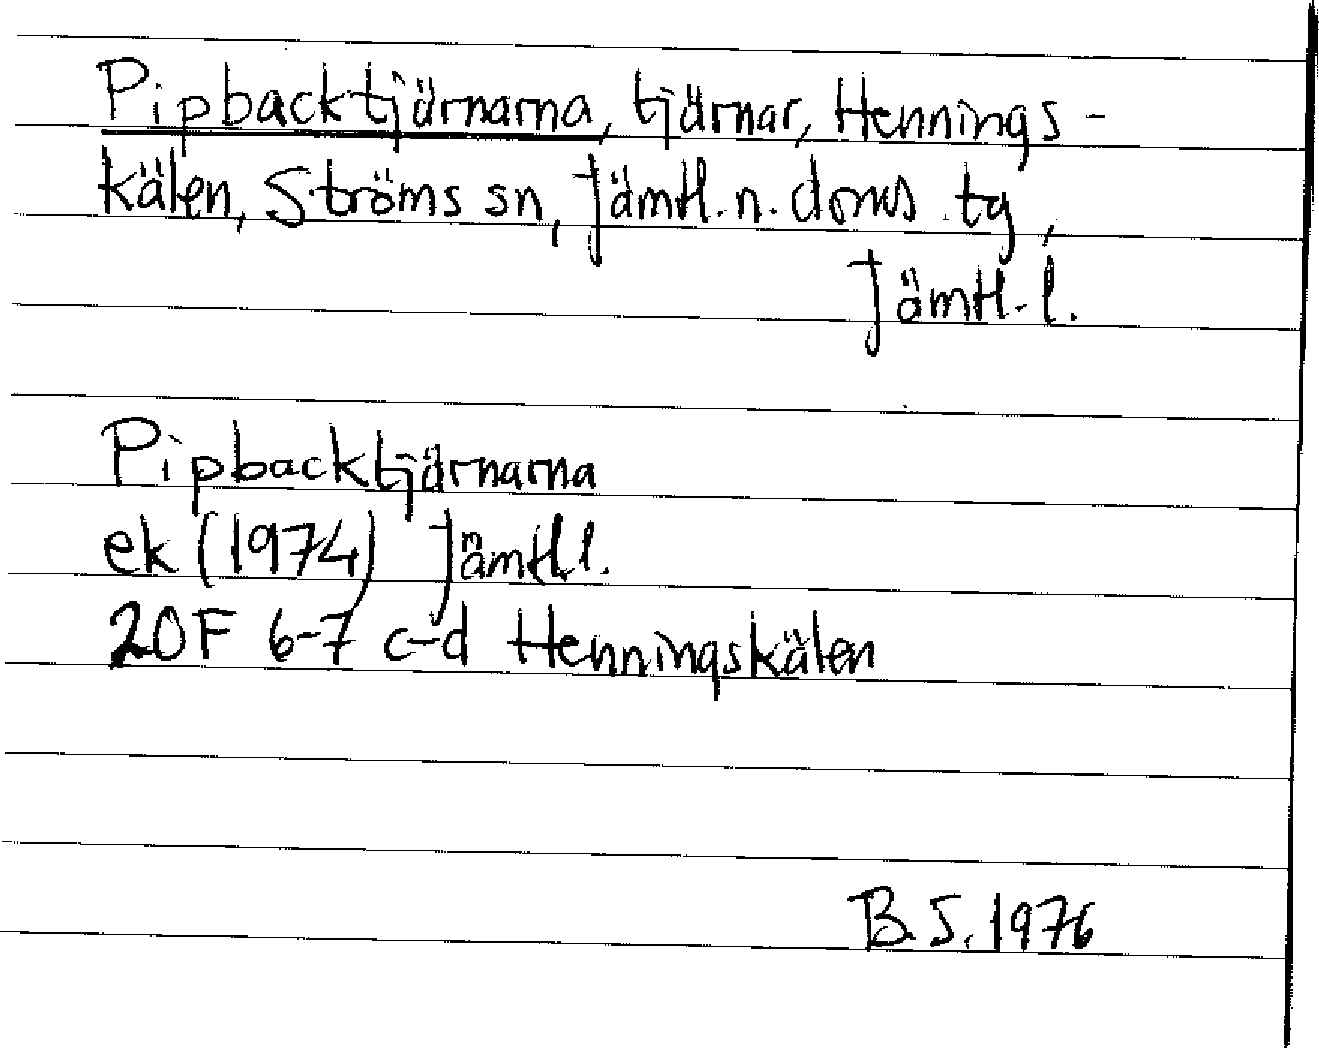 Pipbacktjärnarna, tjärnar, Hennings-
kälen, Ströms sn, Jämtl. n. doms. tg,
Jämtl. l.
Pipbacktjärnarna
ek (1974) Jämtl.l.
20F 6-7 c-d Henningskälen
B.S. 1976